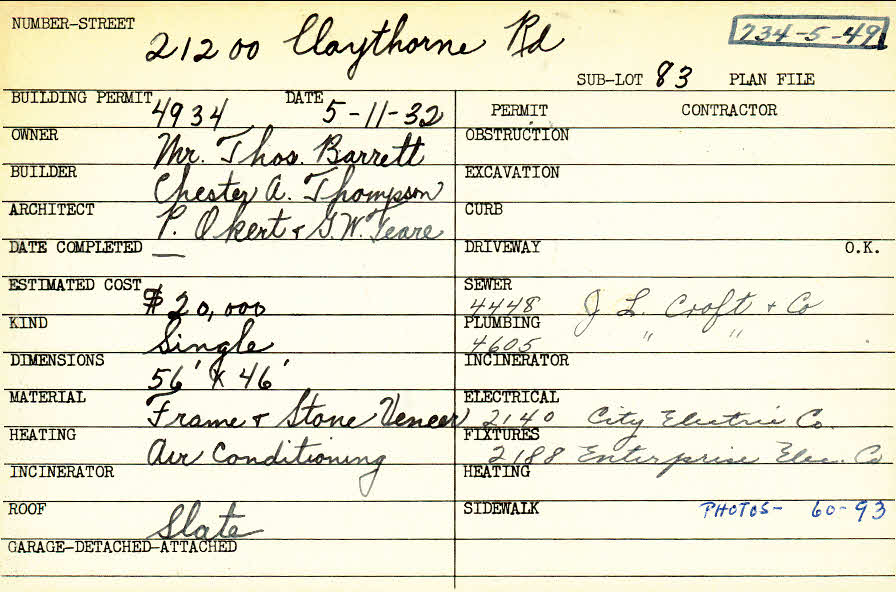 NUMBER-STREET 21200 Claythorne Rd 734-5-49
SUB-LOT 83 PLAN FILE
BUILDING PERMIT 4934 DATE 5-11-32
PERMIT CONTRACTOR
OWNER Mr. Thos. Barrett
OBSTRUCTION
BUILDER Chester A. Thompson
EXCAVATION
ARCHITECT P. Okert & G.W. Teare
CURB
DATE COMPLETED —
DRIVEWAY O.K.
ESTIMATED COST $20,000
SEWER 4448 J L. Croft & Co
KIND Single
PLUMBING 4605 " "
DIMENSIONS 56' X 46'
INCINERATOR
MATERIAL Frame & Stone Veneer
ELECTRICAL 2140 City Electric Co.
HEATING Air Conditioning
FIXTURES 2188 Enterprise Elec. Co
INCINERATOR
HEATING
ROOF Slate
SIDEWALK PHOTOS- 60-93
GARAGE-DETACHED-ATTACHED